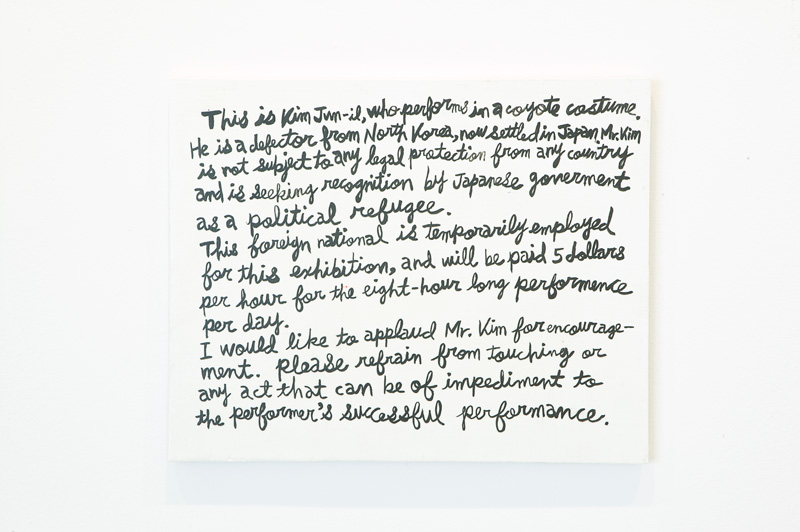 This is Kim Jun-il, who performs in a coyote costume.
He is a defector from North Korea, now settled in Japan. Mr. Kim
is not subject to any legal protection from any country
and is seeking recognition by Japanese goverment
as a political refugee.
This foreign national is temporarily employed
for this exhibition, and will be paid 5 dollars
per hour for the eight-hour long performence
per day.
I would like to applaud Mr. Kim for encourage-
ment. please refrain from touching or
any act that can be of impediment to
the performer's successful performance.